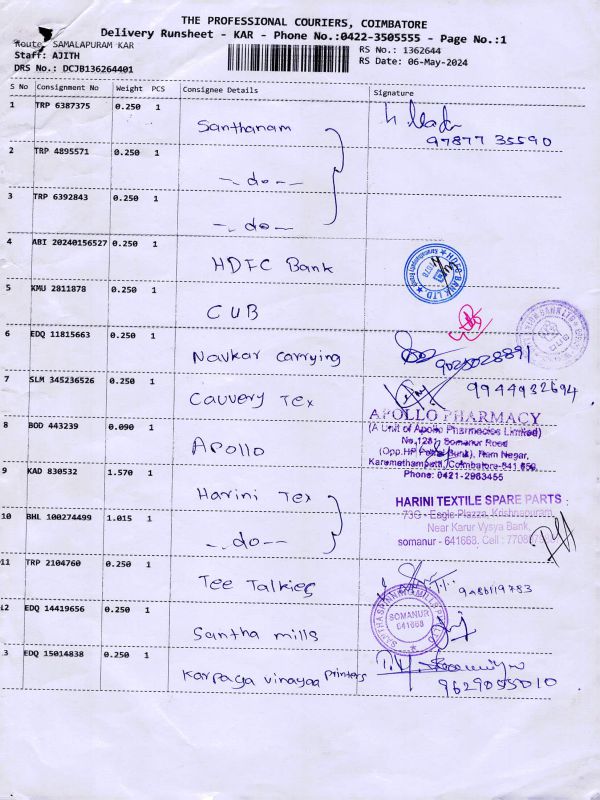 THE PROFESSIONAL COURIERS, COIMBATORE
Delivery Runsheet - KAR - Phone No.:0422-3505555 - Page No.:1
Route: SAMALAPURAM KAR
Staff: AJITH
DRS No.: DCJB136264401
RS No.: 1362644
RS Date: 06-May-2024
S No Consignment No Weight PCS Consignee Details Signature
1 TRP 6387375 0.250 1 Santhanam
97877 35590
2 TRP 4895571 0.250 1 -. do --
3 TRP 6392843 0.250 1 -. do --
4 ABI 20240156527 0.250 1 HDFC Bank
HDFC BANK LTD.
5 KMU 2811878 0.250 1 CUB
CUB
6 EDQ 11815663 0.250 1 Navkar carrying
7 SLM 345236526 0.250 1 Cauvery Tex 9944932694
8 BOD 443239 0.090 1 APOLLO
APOLLO PHARMACY
(A Unit of Apollo Pharmacies Limited)
Somanur Road
(Opp.HP Petrol Bunk), Ram Nagar,
Karumathampatti, Coimbatore-641 659,
Phone: 0421-2963455
9 KAD 830532 1.570 1 Harini Tex
HARINI TEXTILE SPARE PARTS
73G - Eagle Plazza, Krishnapuram,
Near Karur Vysya Bank,
somanur - 641668, Cell :
10 BHL 100274499 1.015 1 -. do --
11 TRP 2104760 0.250 1 Tee Talkies
12 EDQ 14419656 0.250 1 Santha mills
SOMANUR
641668
13 EDQ 15014838 0.250 1 Karpaga vinayaa printers
9629055010